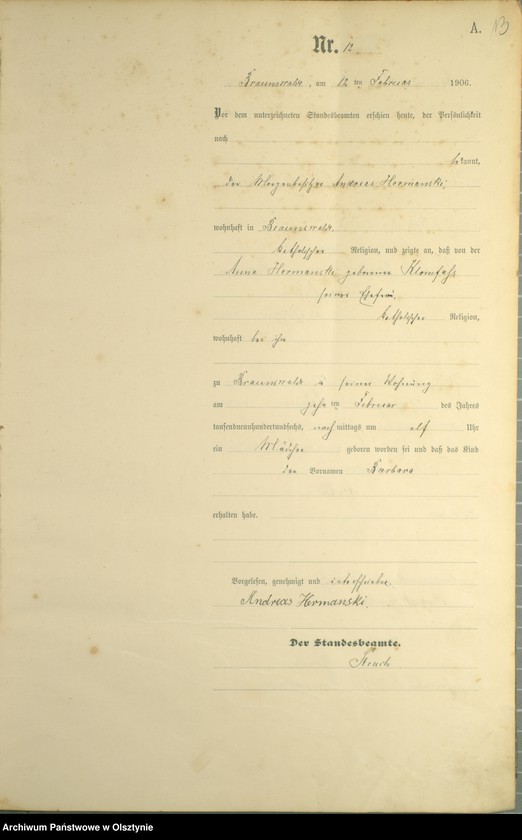 A. 13
Nr. 12
Braunswalde, am 12 ten Februar 1906.
Vor dem unterzeichneten Standesbeamten erschien heute, der Persönlichkeit
nach
bekannt,
der Andreas Hermanski,
wohnhaft in Braunswalde
katholischer Religion, und zeigte an, daß von der
Anna Hermanski geborene Klomfaß
seiner Ehefrau,
katholischer Religion,
wohnhaft bei ihm
zu Braunswalde in seiner Wohnung
am zehn ten Februar des Jahres
tausendneunhundertundsechs, nachmittags um elf Uhr
ein Mädchen geboren worden sei und daß das Kind
den Vornamen Barbara
erhalten habe.
Vorgelesen, genehmigt und unterschrieben.
Andreas Hermanski.
Der Standesbeamte.
Archiwum Państwowe w Olsztynie